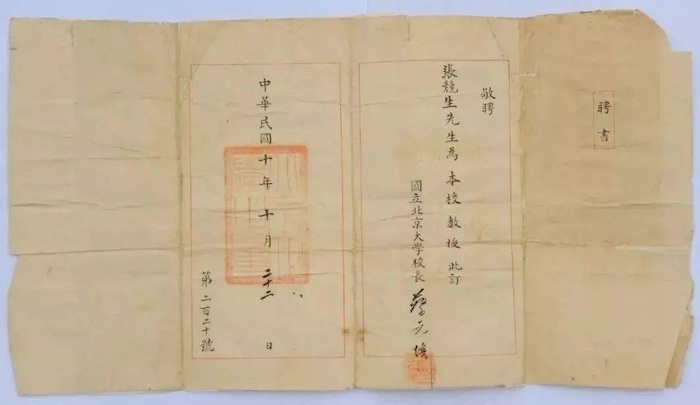 聘書
敬聘
張競生先生為本校教授此訂
國立北京大學校長 蔡元培
中華民國十年十月二十二日
第二百二十號